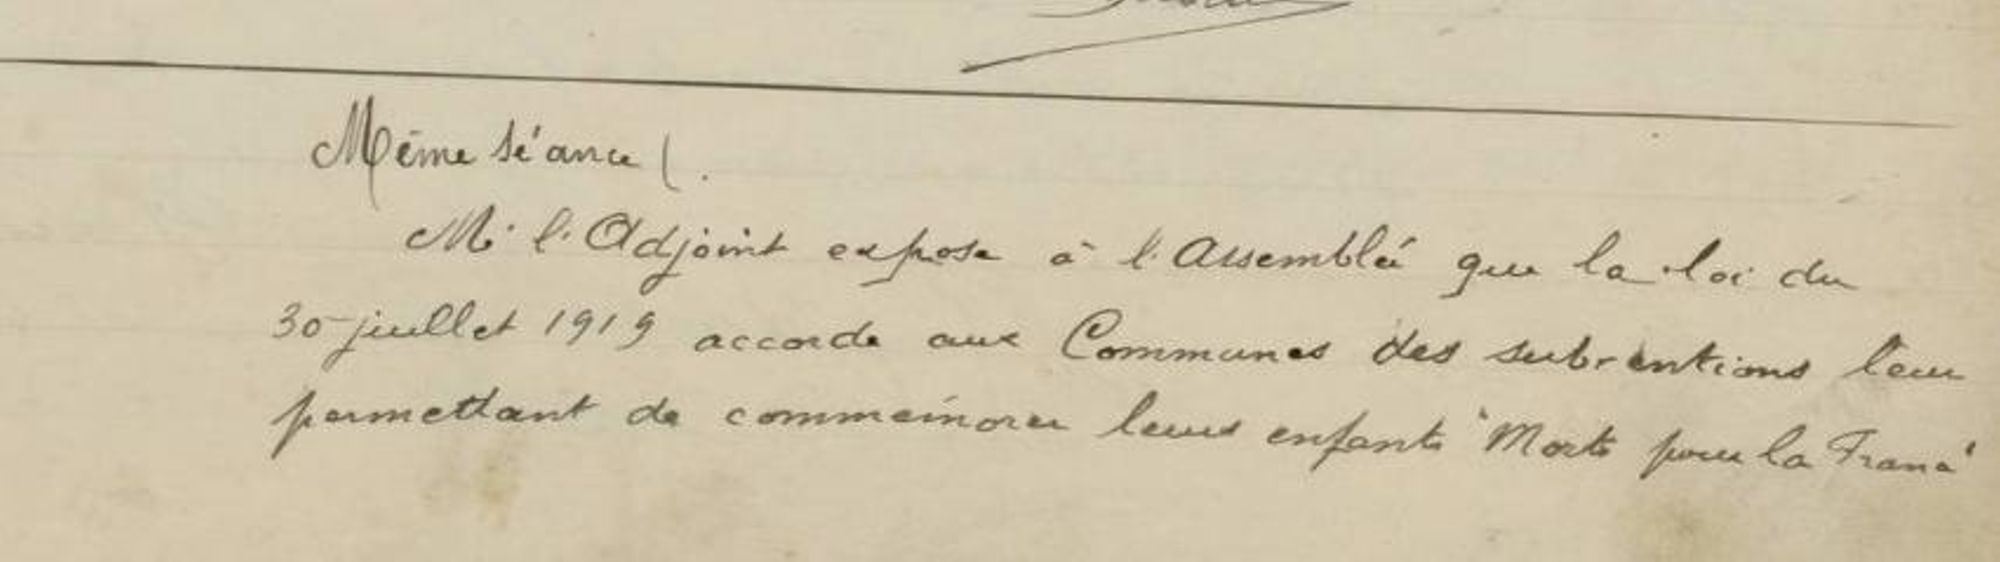 Même séance (.
M. l'Adjoint expose à l'Assemblée que la loi du
30 juillet 1919 accorde aux Communes des subventions leur
permettant de commémorer leurs enfants "Morts pour la France"